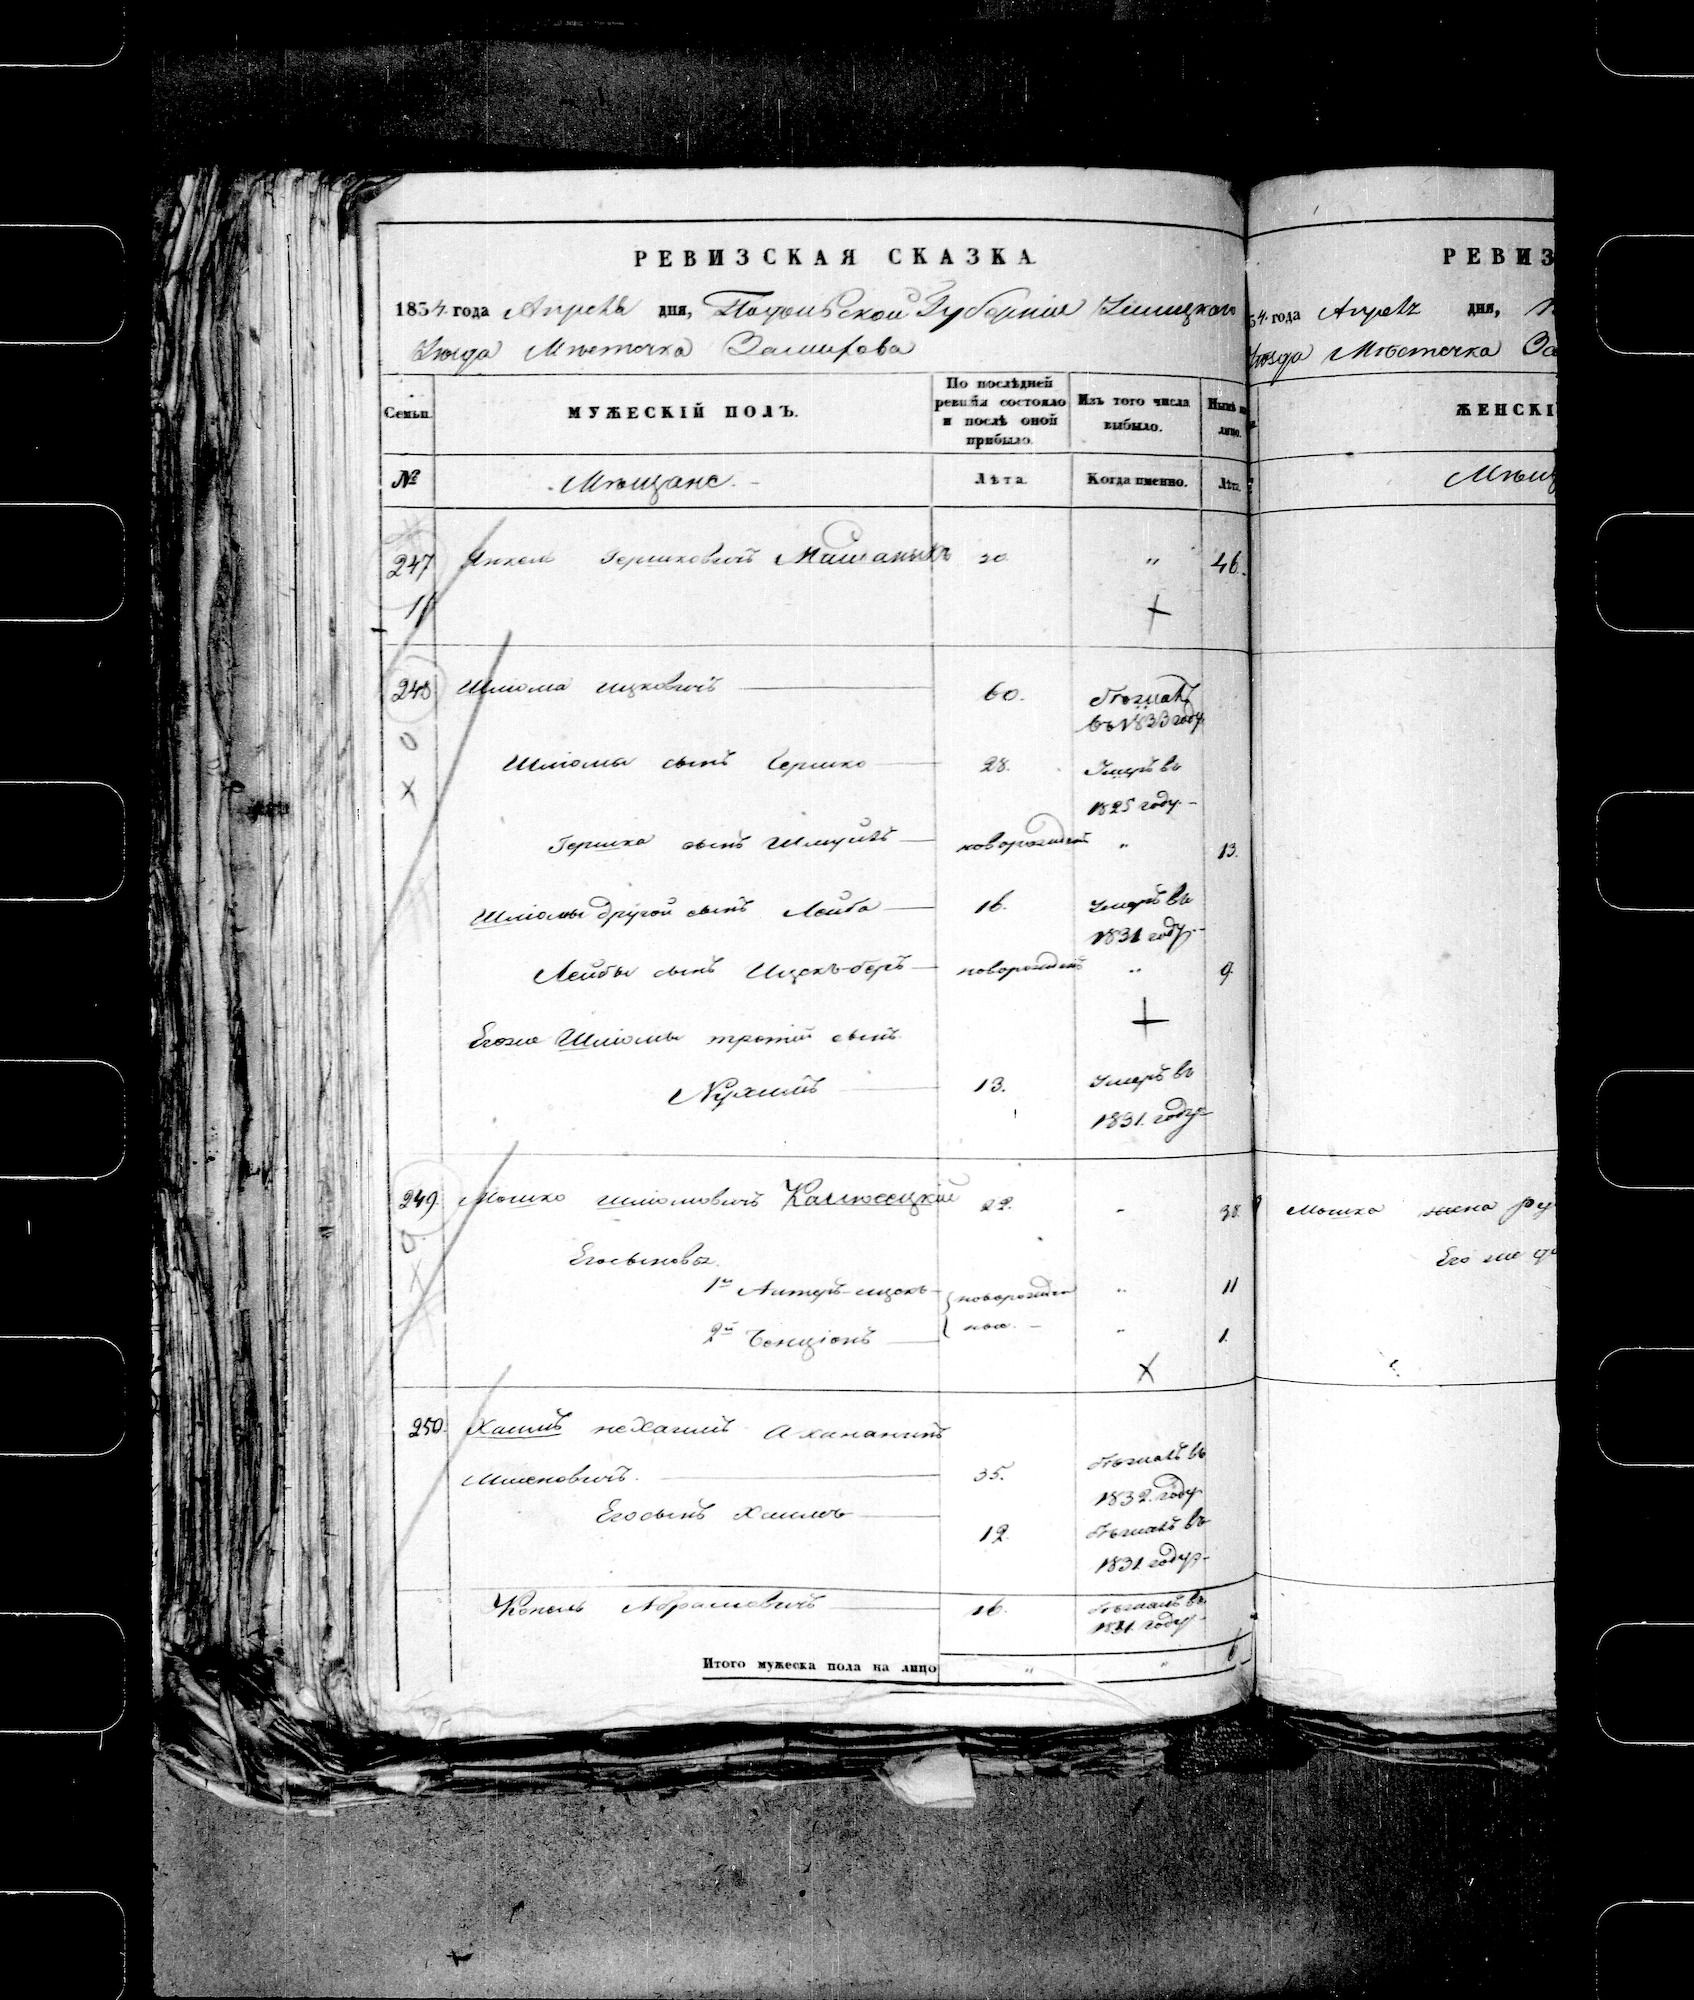 РЕВИЗСКАЯ СКАЗКА
1834 года Апреля дня, Подольской Губернии Ушицкого
Уѣзда Мѣстечка Замихова
Семьи.
МУЖЕСКІЙ ПОЛЪ.
По послѣдней ревизіи состояло и послѣ оной прибыло.
Изъ того числа выбыло.
лицо.
№
Мѣщане
Лѣта.
Когда именно.
Лѣта.
247 Янкель Гершковичъ 20 " 46.
11
248 Шліома Ицковичъ 60. Безъ вѣ
въ 1833 году
Шліомы сынъ Гершко 28. Умеръ въ
1825 году
Гершка сынъ Шмуйль новорожден " 13.
Шліомы другой сынъ Лейба 16. Умеръ въ
1831 году
Лейбы сынъ Ицекъ-беръ новорожден " 9.
Егоже Шліомы третій сынъ
Нухимъ 13. Умеръ въ
1831. году
249. Мошко Шліомовичъ Калюсецкій 22. " 38.
Его сыновья
1й Алтеръ-ицекъ новорожден " 11
2й Бенціонъ ные. " 1.
250. Хаимъ Нехаимъ
35. въ
1832. году
Его сынъ 12. въ
1831 году
Копель Абрамовичъ 16. въ
1831. году
Итого мужеска пола на лицо " " 6
РЕВИЗ
34 года Апрель дня,
Уѣзда Мѣстечка За
ЖЕНСКІ
Мѣщ
Мошка жена Ру
Его же до